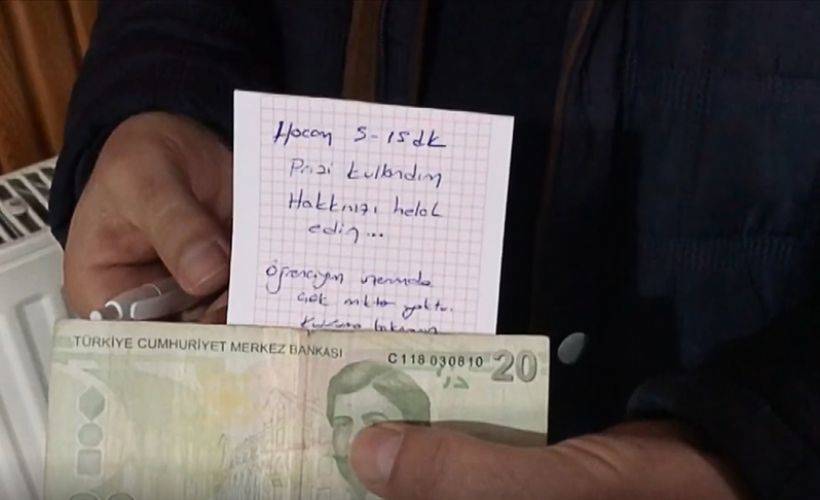 Hocam 5-15 dk
Prizi kullandım
Hakkınızı helal
edin...
Öğrenciyim üzerimde
çok miktar yoktu.
Kusura bakmayın
TÜRKİYE CUMHURİYET MERKEZ BANKASI
C118 030810 20